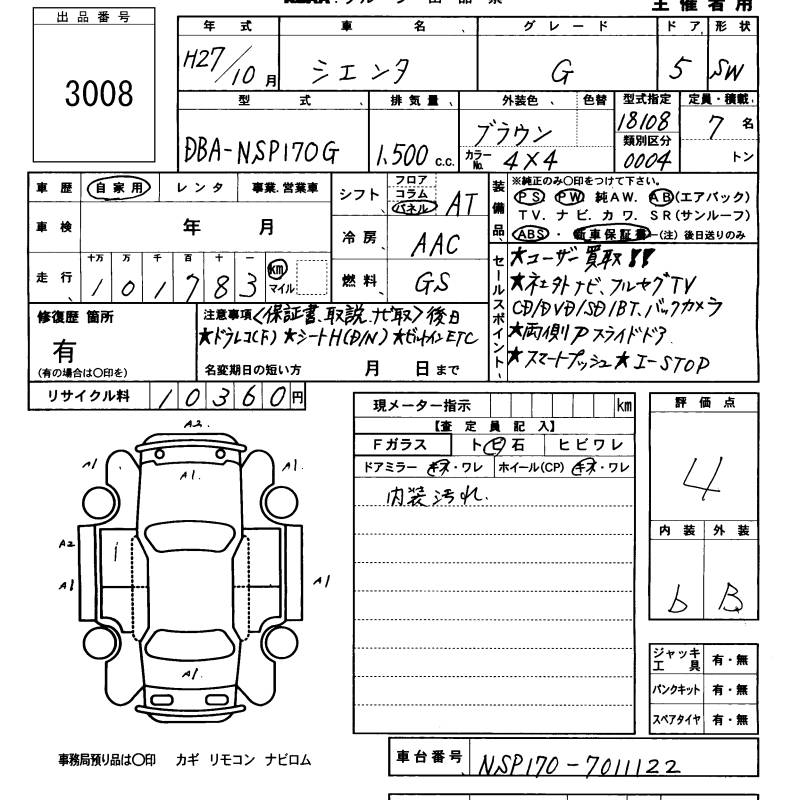 主催者用
出品番号
3008
年式 車名 グレード ドア 形状
H27/10月 シエンタ G 5 SW
型式 排気量 外装色 色替 型式指定 定員・積載
DBA-NSP170G 1,500 c.c. ブラウン 18108 7 名
カラーNo. 4X4 類別区分 0004 トン
車歴 自家用 レンタ 事業.営業車
車検 年 月
走行 十万 万 千 百 十 一
101783 km マイル
シフト フロア コラム パネル AT
冷房 AAC
燃料 GS
装備品
※純正のみ〇印をつけて下さい。
PS PW 純AW. AB(エアバッグ)
TV. ナビ. カワ. SR(サンルーフ)
ABS・新車保証書-(注)後日送りのみ
セールスポイント
★ユーザー買取!!
★ネエタトナビ、フルセグTV
CD/DVD/SD/BT、バックカメラ
★両側Pスライドドア
★スマートプッシュ★I-STOP
修復歴 箇所
有
(有の場合は〇印を)
注意事項 <保証書、取説、ナビ取>後日
★ドラレコ(F) ★シートH(D/N) ★ビルトインETC
名変期日の短い方 月 日まで
リサイクル料 10360円
現メーター指示 km
【査定員記入】
Fガラス トビ石 ヒビワレ
ドアミラー キズ・ワレ ホイール(CP) キズ・ワレ
内装汚れ.
評価点
4
内装 外装
b B
ジャッキ工具 有・無
パンクキット 有・無
スペアタイヤ 有・無
A2.
A1 A1. A1
A2
A1 A1
A1.
事務局預り品は〇印 カギ リモコン ナビロム
車台番号 NSP170-7011122